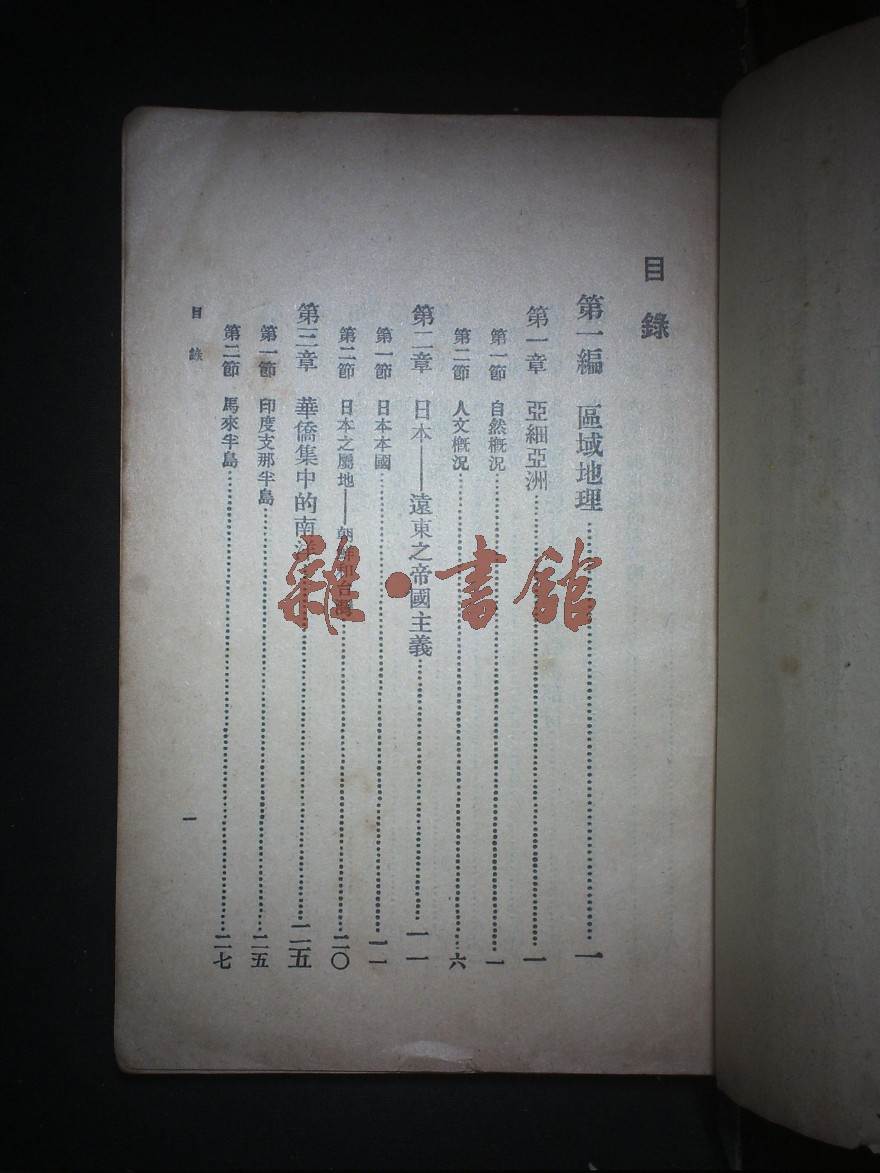 目錄
第一編 區域地理……一
第一章 亞細亞洲……一
第一節 自然概況……一
第二節 人文概況……六
第二章 日本——遠東之帝國主義……一一
第一節 日本本國……一一
第二節 日本之屬地——朝鮮和台灣……二〇
第三章 華僑集中的南洋……二五
第一節 印度支那半島……二五
第二節 馬來半島……二七
目錄
一
雜·書館